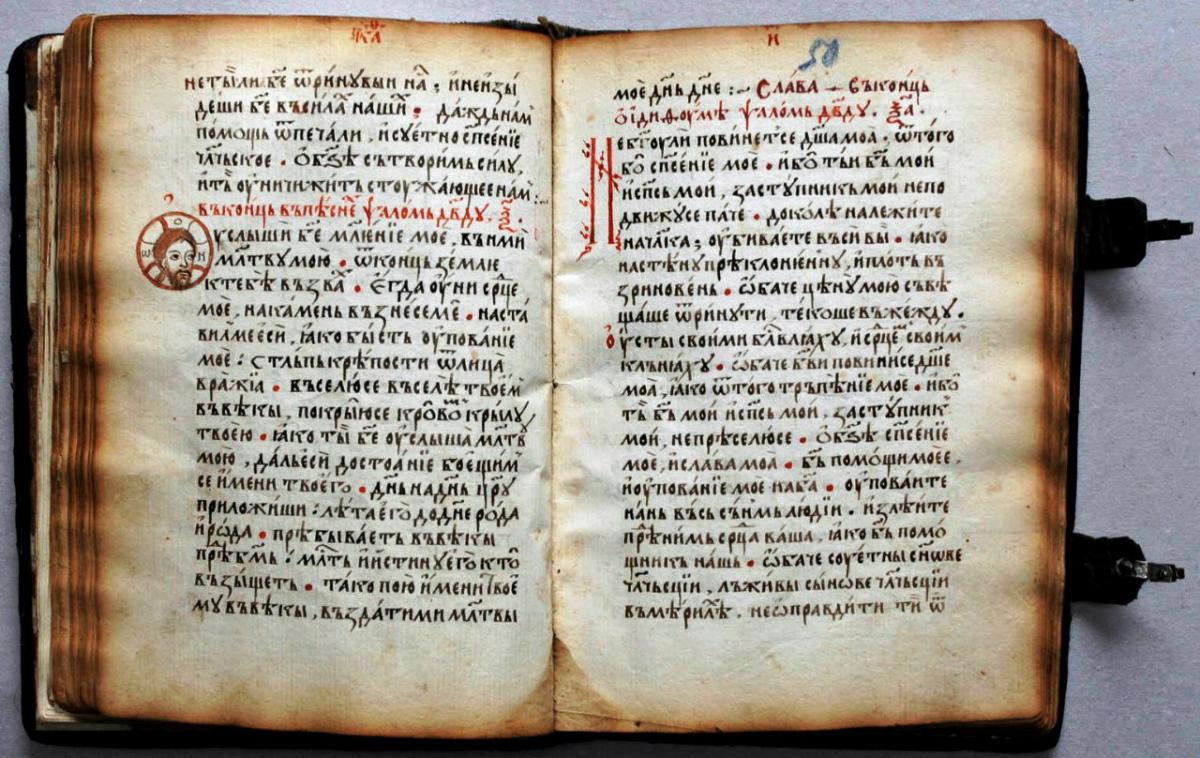 нетыли бж҃е ѿринꙋвыи на҃ . и҆неизы
деши бж҃е въсила҃ нашⷯи . даждь намⷨ
помощь ѿпечали , и҆сꙋетно сп҃сенїе
чл҃чьское . ѡ҆бз҃ѣ сътворимь силꙋ ,
и҆ть оу҆ничижить стоужающее намⷨ :
въконць въпѣснеⷯ ѱаломь дв҃дꙋ . ѯ҃ .
оуслыши бж҃е мл҃енїе мое , въньми
мл҃твꙋ мою . ѿконць земле
ктебѣ възваⷯ . е҆гда оу҆ни ср҃це
мое , на камень възнесе ме . наста
вилме е҆си , ꙗ҆ко бысть оу҆пованїе
мое : стльпь крѣпости ѿ лица
вражїа . въселюсе въселѣ твоемⷨ
въвѣкы , покрыюсе кровоⷨ крылꙋ
твоею . ꙗ҆ко ты бж҃е оу҆слыша мл҃твꙋ
мою , даль е҆си достоанїе боещимⷨ
се и҆мени твоего . дн҃ь на дн҃ь цр҃ꙋ
приложиши : лѣта е҆го до дн҃е рода
и҆ рѡда . прѣбываеть въвѣкы
прѣⷣ бг҃мь : мл҃ть и҆ и҆стинꙋ е҆го кто
възыщеть . тако пою и҆мени твое
мꙋ въвѣкы , въздати ми мл҃твы
н҃ 50
мое дн҃ь дн҃е :~ Слава ~ Въконць
о҆ идиѳоумѣ ѱаломь дв҃дꙋ . ѯ҃а .
Не бг҃оу ли повинетсе дш҃а моа . ѿ того
бѡ сп҃сенїе мое . и҆бо ты бг҃ь мои
и҆ сп҃сь мои , застꙋпникь мои непо
движꙋсе паче . доколѣ належите
на чл҃ка ; оу҆биваете въси вы . ꙗ҆ко
на стѣнꙋ прѣклоніенꙋ , и҆ плоть въ
зриновень . ѡ҆баче цѣнꙋ мою съвѣ
щаше ѿринꙋти , текоше въ жеждꙋ .
оусты своими бл҃влꙗхꙋ , и҆ ср҃цеⷨ своимⷨ
кльнꙗхꙋ . ѡ҆баче бг҃ви повинисе дш҃е
моа , ꙗ҆ко ѿ того трьпѣнїе мое . и҆бѡ
ть бг҃ь мои и҆ сп҃сь мои , застꙋпникⷩ
мои , непрѣселюсе . ѡ҆ бз҃ѣ сп҃сенїе
мое , и҆ слава моа . бг҃ь помощи моее .
и҆ оу҆пованїе мое на ба҃ . оу҆поваите
нань въсь съньмь людїи . и҆злѣите
прѣⷣ нимь ср҃ца ваша , ꙗ҆ко бг҃ь помо
щникь нашь . ѡ҆баче соуетны сн҃ове
чл҃чьсции , лъживы сынове чл҃чьсции
въмѣрилѣⷯ . неѡправдити ти ѿ